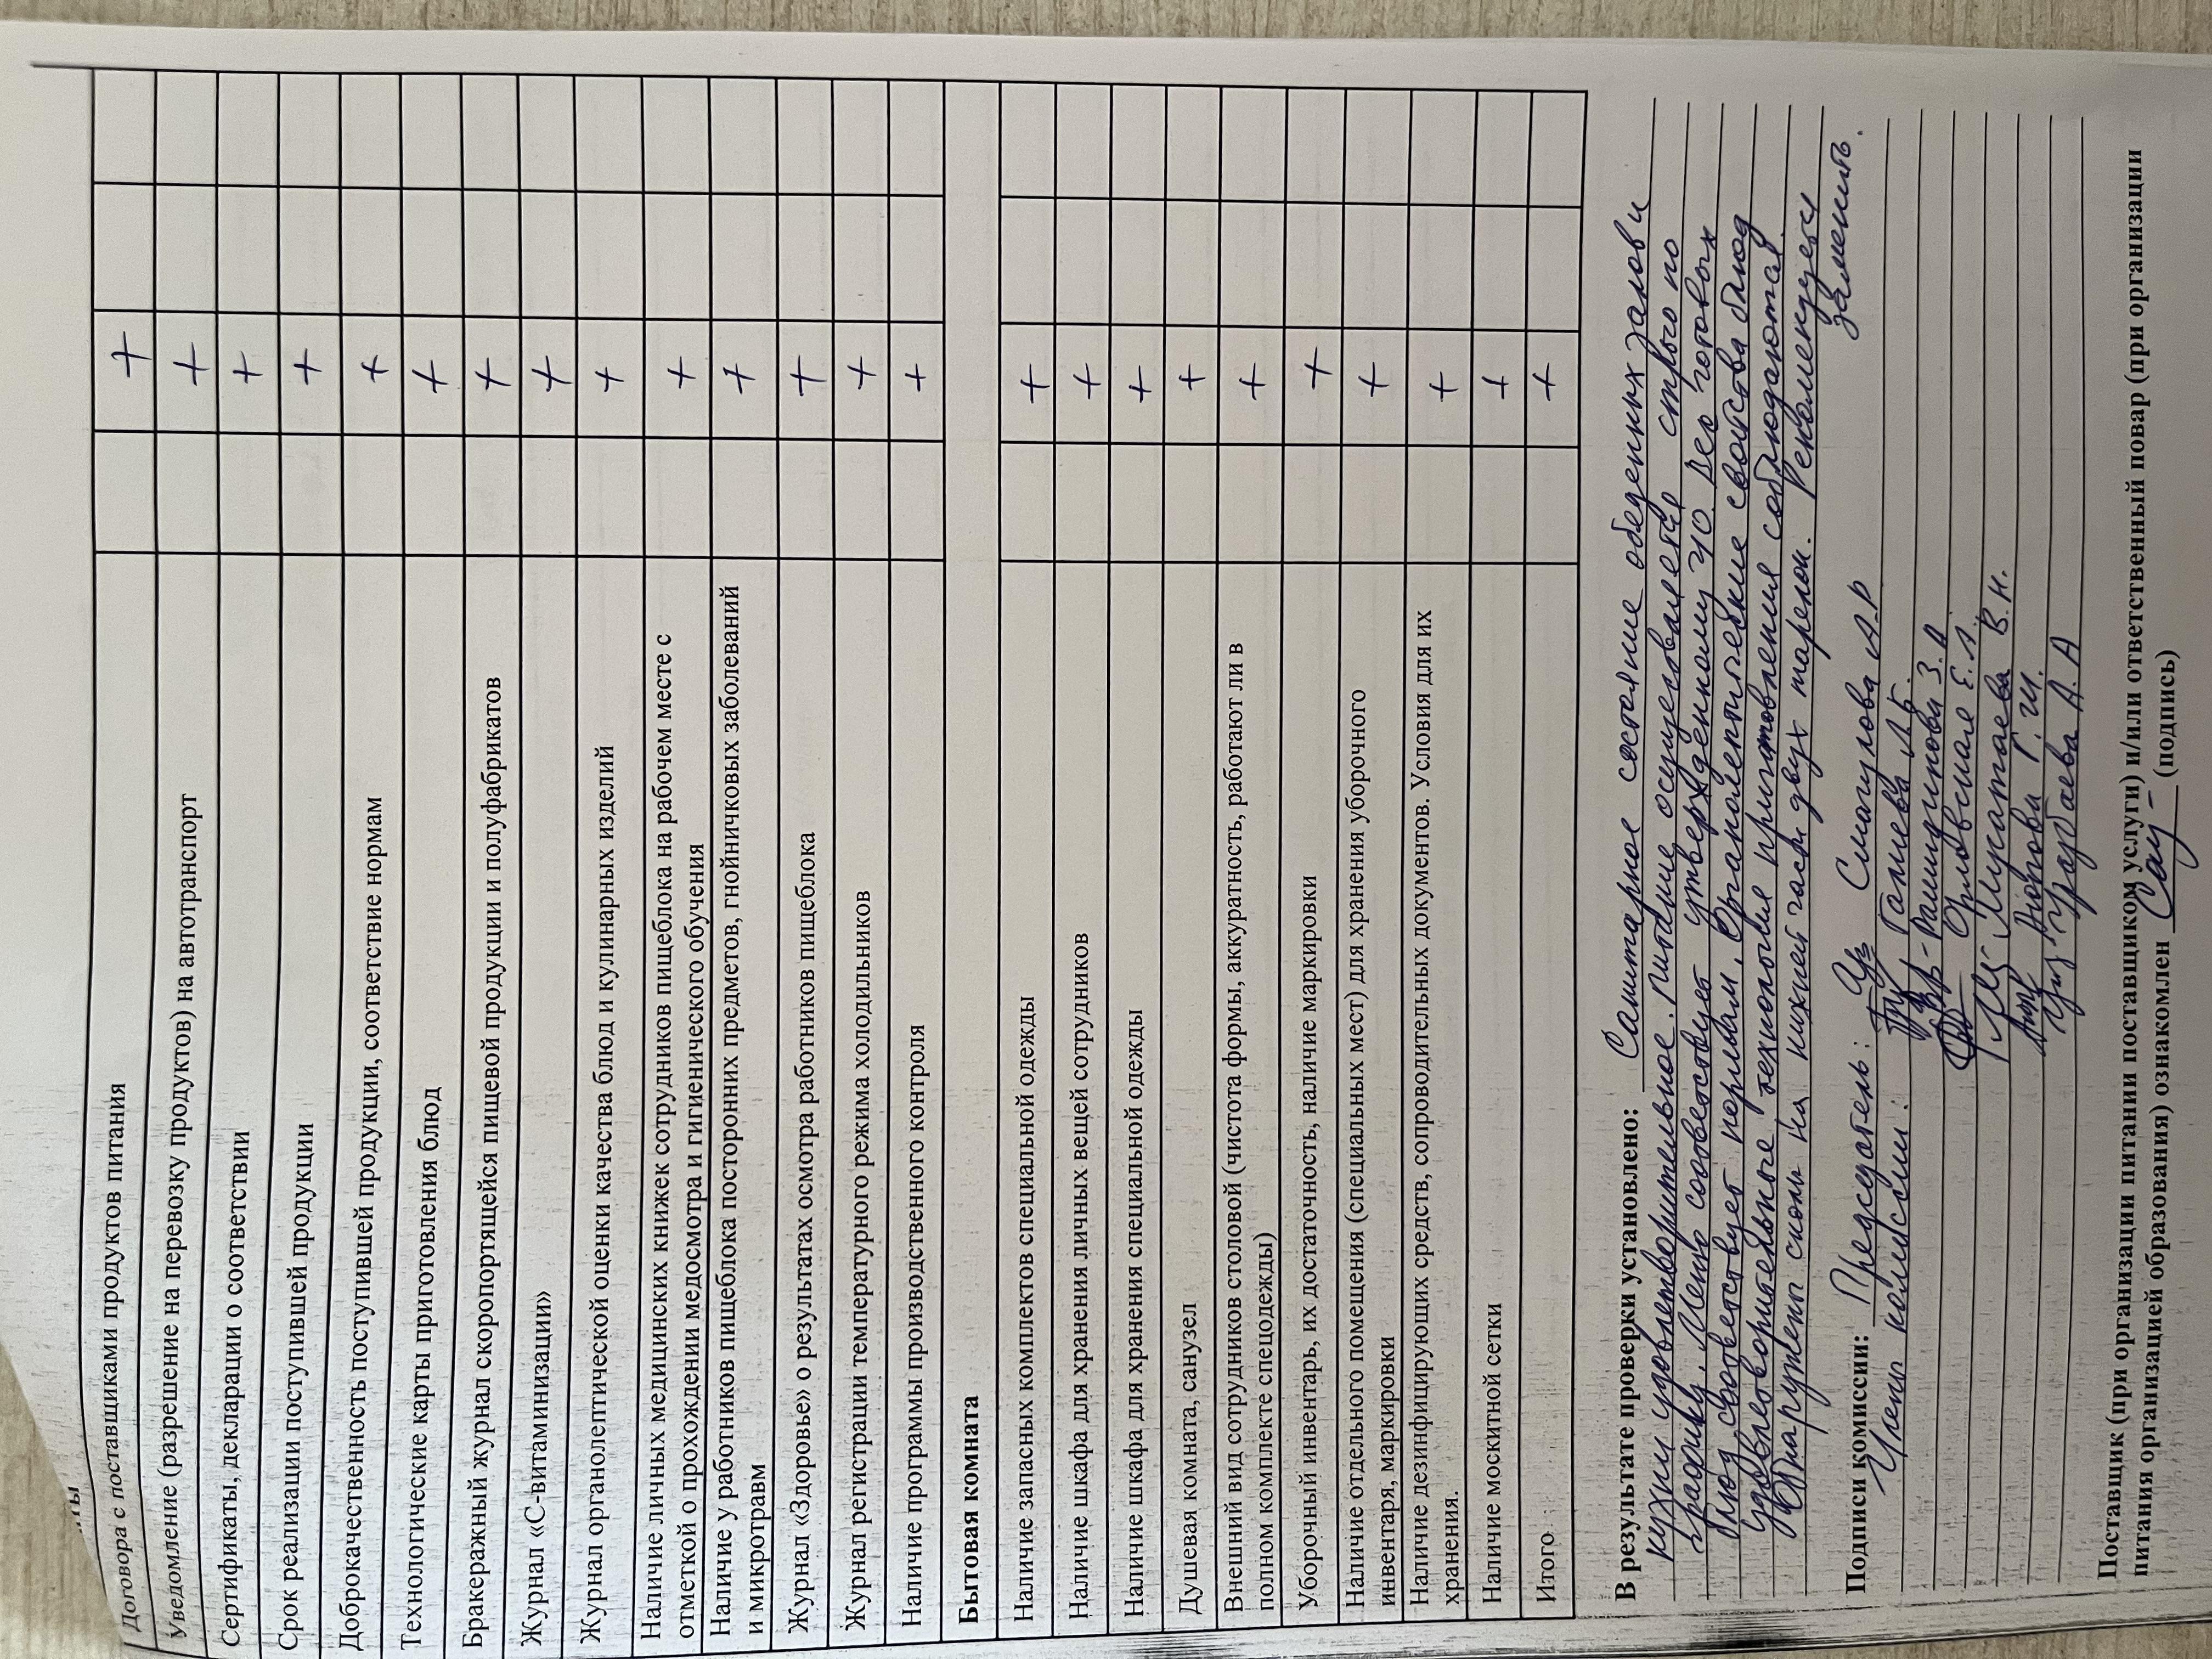 Договора с поставщиками продуктов питания +
Уведомление (разрешение на перевозку продуктов) на автотранспорт +
Сертификаты, декларации о соответствии +
Срок реализации поступившей продукции +
Доброкачественность поступившей продукции, соответствие нормам +
Технологические карты приготовления блюд +
Бракеражный журнал скоропортящейся пищевой продукции и полуфабрикатов +
Журнал «С-витаминизации» +
Журнал органолептической оценки качества блюд и кулинарных изделий +
Наличие личных медицинских книжек сотрудников пищеблока на рабочем месте с
отметкой о прохождении медосмотра и гигиенического обучения +
Наличие у работников пищеблока посторонних предметов, гнойничковых заболеваний
и микротравм +
Журнал «Здоровье» о результатах осмотра работников пищеблока +
Журнал регистрации температурного режима холодильников +
Наличие программы производственного контроля +
Бытовая комната
Наличие запасных комплектов специальной одежды +
Наличие шкафа для хранения личных вещей сотрудников +
Наличие шкафа для хранения специальной одежды +
Душевая комната, санузел +
Внешний вид сотрудников столовой (чистота формы, аккуратность, работают ли в
полном комплекте спецодежды) +
Уборочный инвентарь, их достаточность, наличие маркировки +
Наличие отдельного помещения (специальных мест) для хранения уборочного
инвентаря, маркировки +
Наличие дезинфицирующих средств, сопроводительных документов. Условия для их
хранения. +
Наличие москитной сетки +
Итого +
В результате проверки установлено: Санитарное состояние обеденных залов и
кухни удовлетворительное. Питание осуществляется строго по
графику. Меню соответствует утвержденному УО. Вес готовых
блюд соответствует нормам. Органолептические свойства блюд
удовлетворительные, технология приготовления соблюдаются.
Обнаружены сколы на нижней части двух тарелок. Рекомендуется
заменить.
Подписи комиссии: Председатель: Смагулова А.Р
Члены комиссии: Галиева Л.Б.
Рашидинова З.А
Орловская Е.Л.
Мусатаева В.Н.
Аюпова Г.Ш.
Уразбаева А.А
Поставщик (при организации питании поставщиком услуги) и/или ответственный повар (при организации
питания организацией образования) ознакомлен (подпись)